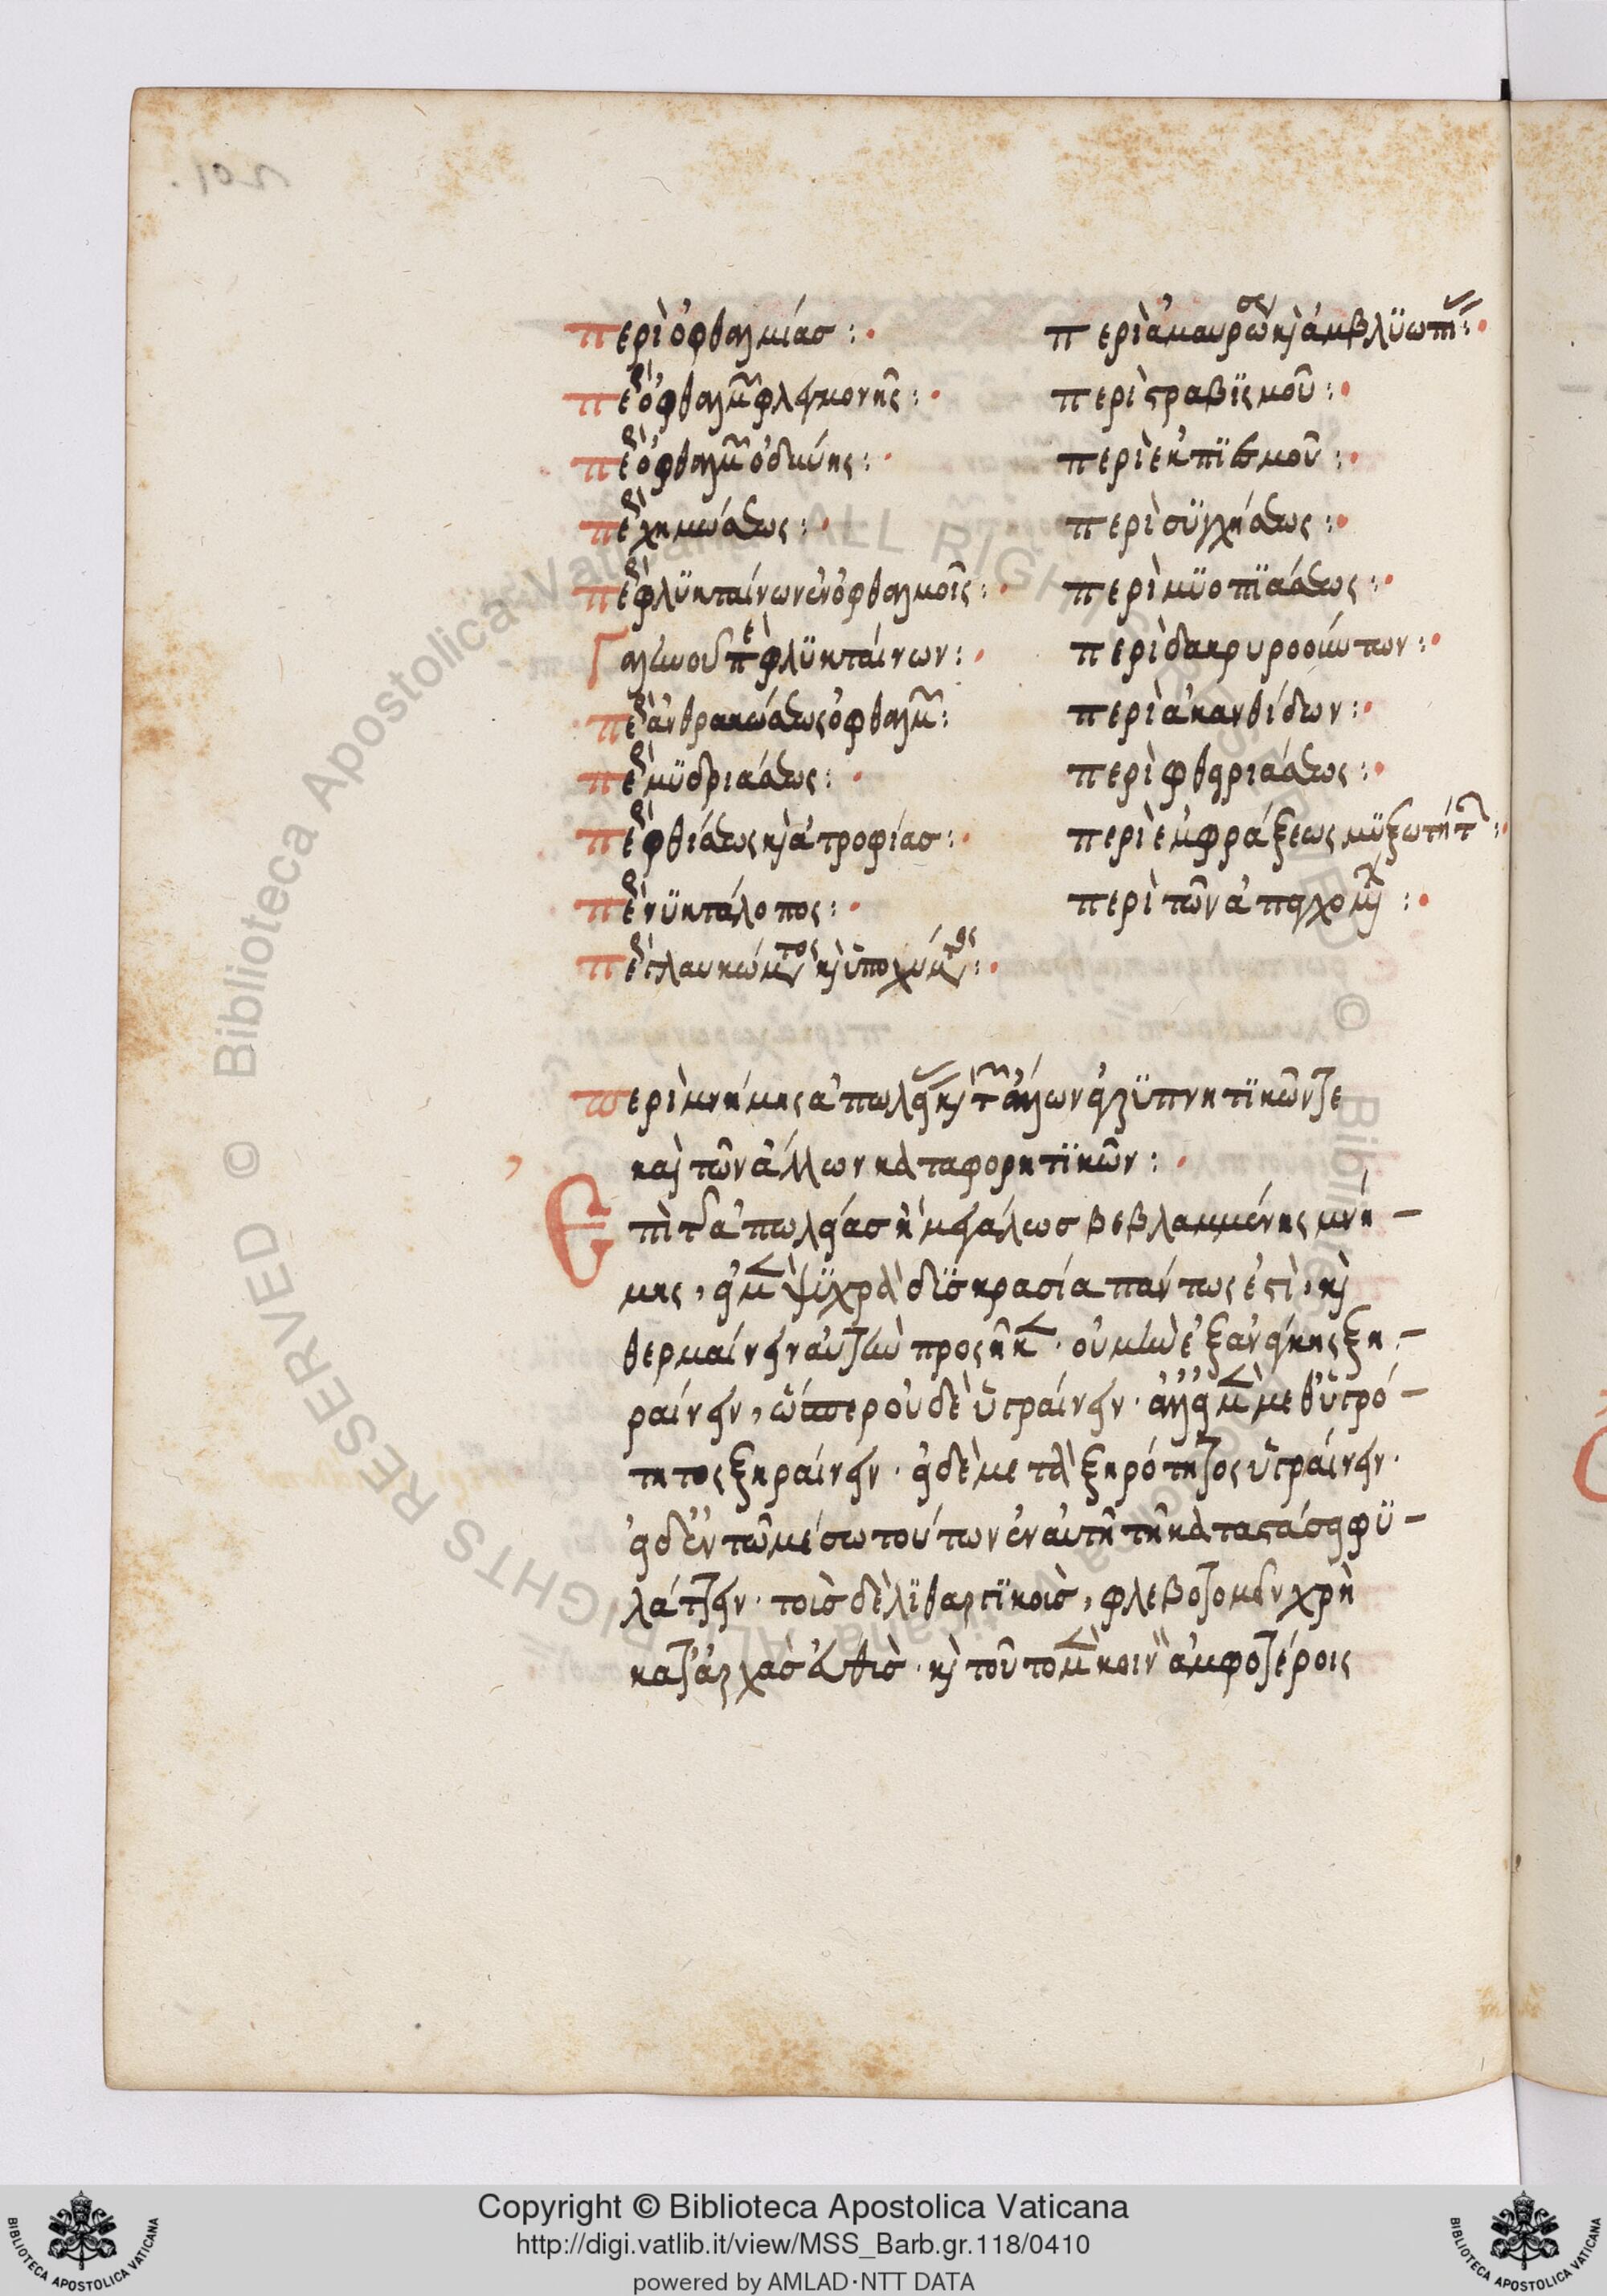 περὶ ὀφθαλμίασ:
περὶ ὀφθαλμῶν φλεγμονῆς:
περὶ ὀφθαλμῶν ὀδύνης:
περὶ χημώσεως:
περὶ φλϋκταίνων ἐν ὀφθαλμοῖς:
Γαληνοῦ περὶ φλϋκταίνων:
περὶ ἀνθρακώσεως ὀφθαλμῶν:
περὶ μϋδριάσεως:
περὶ φθίσεως κὶ ἀτροφίασ:
περὶ νϋκτάλοπος:
περὶ γλαυκώματος κὶ ὑποχύματος:
περὶ ἀμαυρώσεως κὶ ἀμβλϋωπίας:
περὶ στραβϊσμοῦ:
περὶ ἐκπϊεσμοῦ:
περὶ σϋγχύσεως:
περὶ μϋοπϊάσεως:
περὶ δακρυροούντων:
περὶ ἀκανθίδων:
περὶ φθειριάσεως:
περὶ ἐμφράξεως μϋξωτήρων:
περὶ τῶν
περὶ μνήμης ἀπωλείας κὶ τῶν ἄλλων ἀγρϋπνητϊκῶν τε
καὶ τῶν ἄλλων καταφορητϊκῶν:
Ἐπὶ τῆς ἀπωλείασ ἢ μεγάλωσ βεβλαμμένης μνή
μης, εἰ μὲν ψϋχρὰ δϋσκρασία πάντως ἐστὶ, κὶ
θερμαίνειν αὐτὴν προσῆκεν. οὐ μὴν ἐξ ἀνάγκης ξη
ραίνειν, ὥσπερ οὐδὲ ὑγραίνειν. ἀλλ' εἰ μὲν μεθ' ὑγρό
τητος ξηραίνειν. εἰ δὲ μετὰ ξηρότητος ὑγραίνειν.
εἰ δ' ἐν τῶ μέσω τούτων ἐν αὐτῆ τῆ καταστάσει φϋ
λάττειν. τοὶσ δὲ ληθαργϊκοὶσ, φλεβοτομεῖν χρὴ
κατ' ἀρχὰσ εὐθὺσ. κὶ τοῦτο μὲν κοινὸν ἀμφοτέροις
Copyright © Biblioteca Apostolica Vaticana
http://digi.vatlib.it/view/MSS_Barb.gr.118/0410
powered by AMLAD·NTT DATA